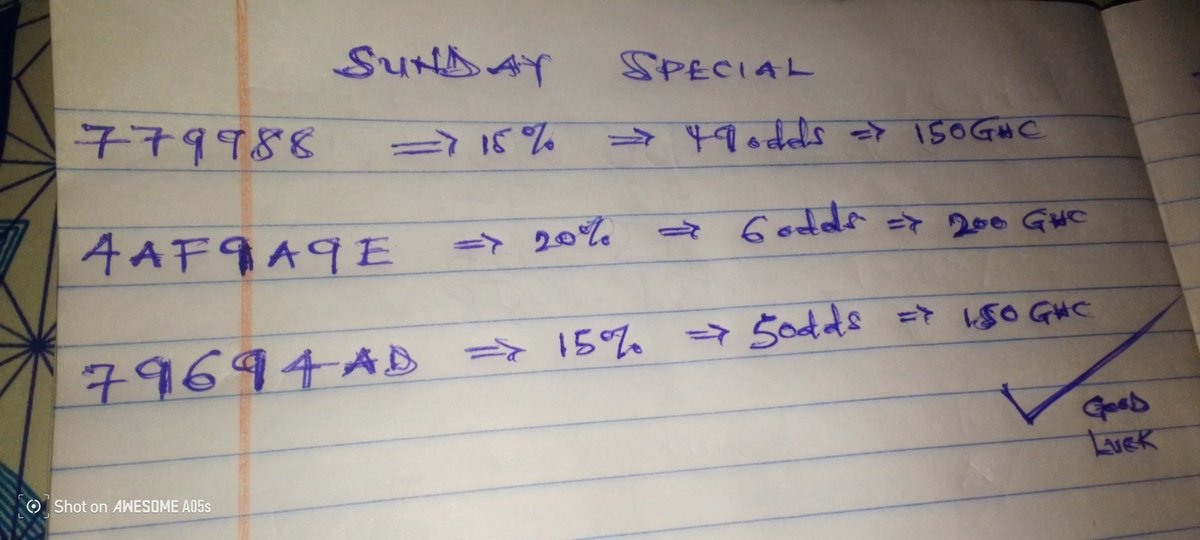 SUNDAY SPECIAL
779988 => 15% => 49 odds => 150 GHC
4AF9A9E => 20% => 6 odds => 200 GHC
79694AD => 15% => 5 odds => 150 GHC
GOOD
LUCK
Shot on AWESOME A05s